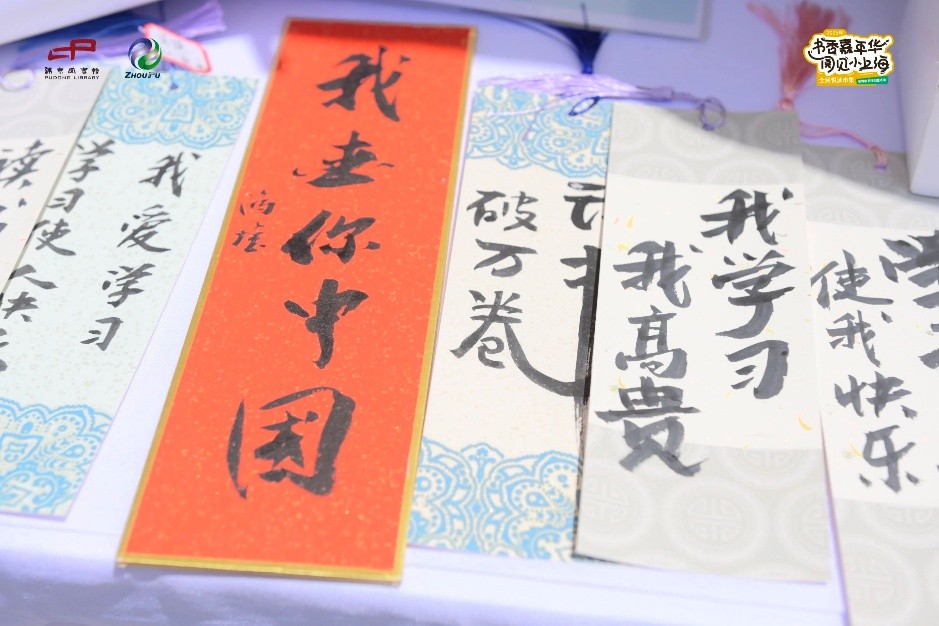 浦东图书馆
PUDONG LIBRARY
ZHOUPU
书香嘉年华
阅见小上海
全民悦读市集
读
学习使
人快
我爱学习
我爱你中国
破万卷
我学习
我高贵
学
使我快乐